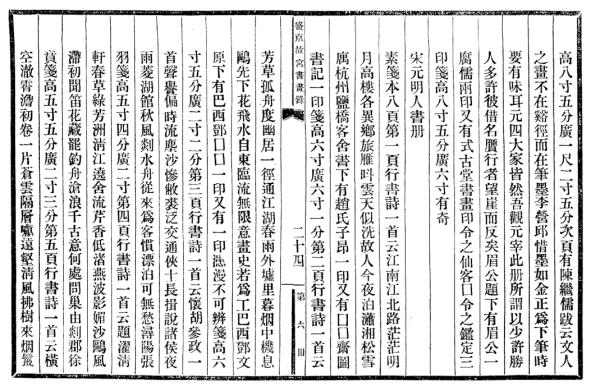 高八寸五分廣一尺二寸五分次頁有陳繼儒跋云文人
之畫不在谿徑而在筆墨李營邱惜墨如金正為下筆時
要有味耳元四大家皆然吾觀元宰此册所謂以少許勝
人多許彼借名贋行者望崖而反矣眉公題下有眉公一
腐儒兩印又有式古堂書畫印令之仙客囗令之鑑定三
印箋高八寸五分廣六寸有奇
宋元明人書册
素箋本八頁第一頁行書詩一首云江南江北路茫茫明
月高樓各異鄉旅雁呌雲天似洗故人今夜泊瀟湘松雪
寓杭州鹽橋客舍書下有趙氏子昂一印又有囗囗齋圖
書記一印箋高六寸廣六寸一分第二頁行書詩一首云
盛京故宮書畫錄
二十四
第六册
芳草孤舟度幽居一徑通江湖春雨外墟里暮烟中機息
鷗先下花飛水自東臨流無限意畫史若為工巴西鄧文
原下有巴西鄧囗囗囗又有一印漶漫不可辨箋高六
寸五分廣二寸二分第三頁行書詩一首云懷胡參政一
首聲譽偏時流塵沙慘敝裘泛交通俠士長揖說諸侯夜
雨菱湖館秋風剡水舟從來為客慣漂泊可無愁潯陽張
羽箋高五寸四分廣二寸第四頁行書詩一首云題濯清
軒春草綠芳洲清江遶舍流芹香低渚燕波影媚沙鷗風
滯初聞笛花藏罷釣舟滄浪千古意何處問巢由剡郡徐
賁箋高五寸五分廣二寸三分第五頁行書詩一首云橫
空澈霄澹初卷一片蒼雲隔層巘遠壑清風拂樹來烟鬟